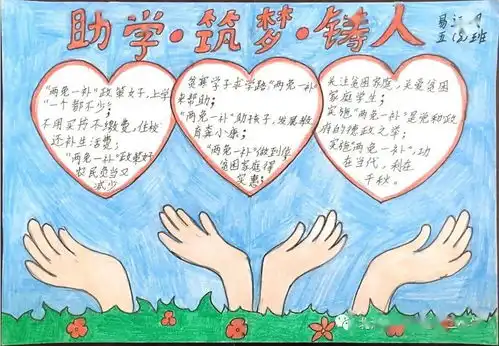 助学·筑梦·铸人
"两免一补"政策好,上学
一个都不少;
不用买书不缴费,住校
还补生活费;
"两免一补"政策好
农民负担又
减少
贫寒学子求学路,"两免一补"
来帮助;
"两免一补"助孩子,发展教
育奔小康;
"两免一补"做到位
贫困家庭得
实惠;
关注贫困家庭,关爱贫困
家庭学生;
实施"两免一补"是党和政
府的德政之举;
实施"两免一补",功
在当代,利在
千秋。